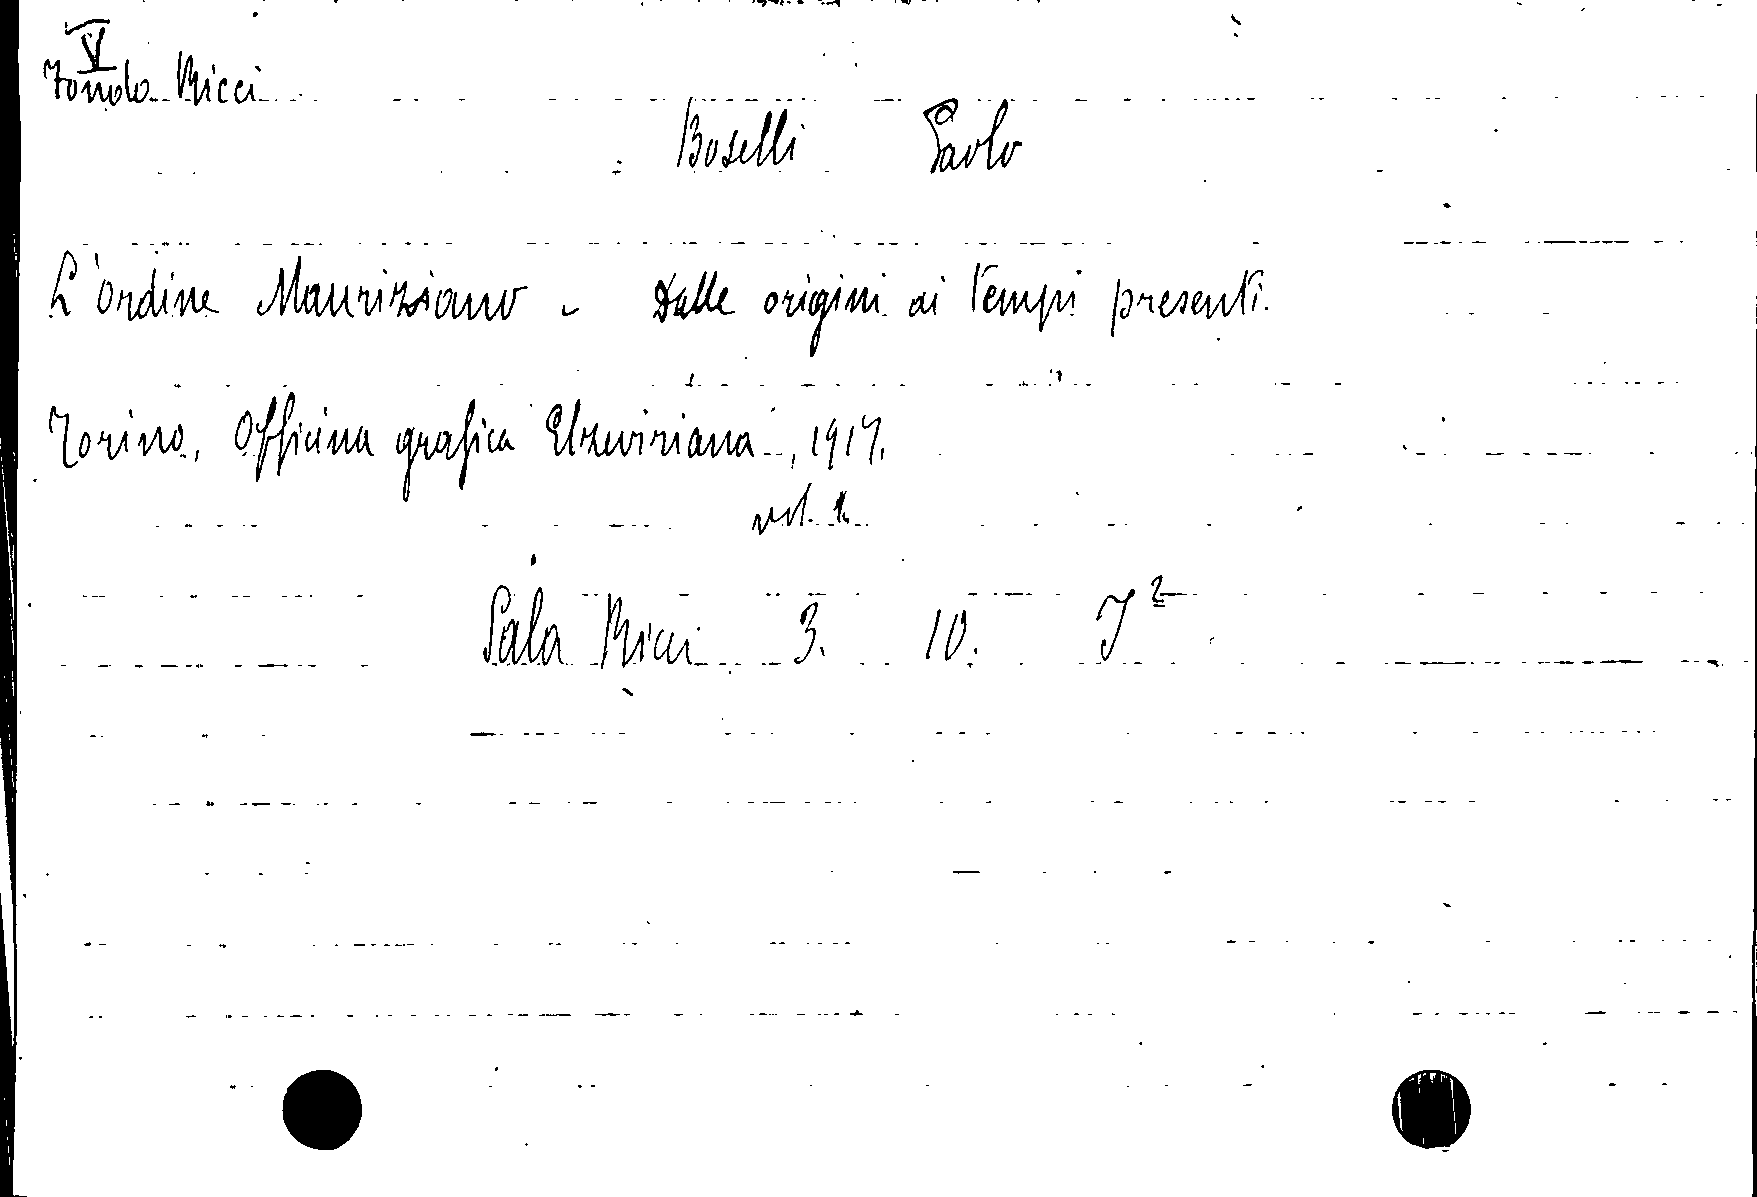 V
Fondo Ricci
Boselli Paolo
L'ordine Mauriziano - Dalle origini ai tempi presenti.
Torino, Officina grafica Elzeviriana, 1917.
vol. 1.
Sala Ricci 3. 10. I²